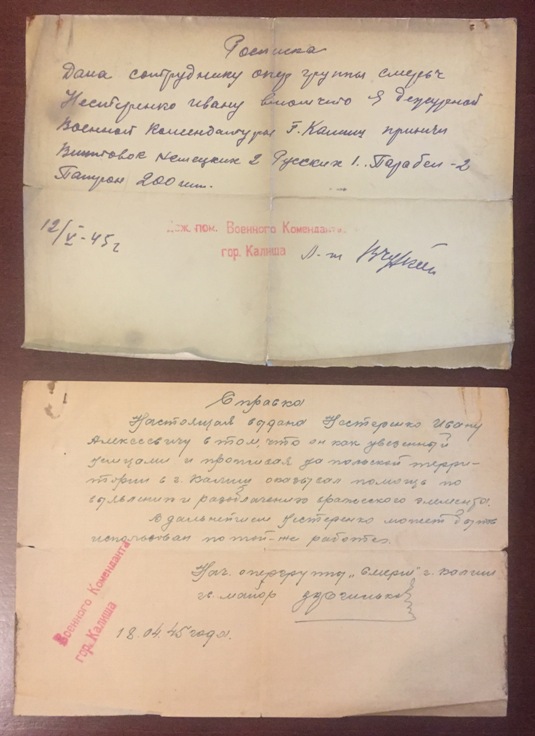 Росписка
Дана сотруднику опер группы смерьч
Нестеренко Ивану в том что я дежурной
Военной Комендатуры г. Калиш принял
Винтовок Немецких 2 Русских 1.. Парабел - 2
Патрон 200 шт.
12/V-45 г
Деж. пом. Военного Коменданта
гор. Калиша
Л-т
Справка
Настоящая выдана Нестеренко Ивану
Алексеевичу в том, что он как увезенный
немцами и проживая на польской терри-
тории в г. Калиш оказывал помощь по
выявлению и разоблачению вражеского элемента.
В дальнейшем Нестеренко может быть
использован по той-же работе.
Нач. опергруппы "Смерш" г. Калиш
гв майор
18.04.45 года.
Военного Коменданта
гор. Калиша